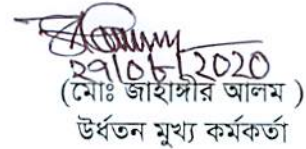 29/06/2020
(মোঃ জাহাঙ্গীর আলম )
উর্ধতন মুখ্য কর্মকর্তা